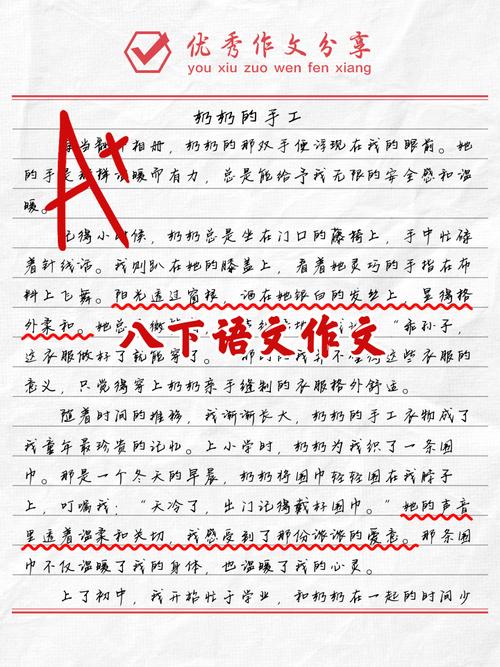 优秀作文分享
you xiu zuo wen fen xiang
奶奶的手工
A+
当翻相册，奶奶的那双手便浮现在我的眼前。她
的手是那样暖而有力，总是能给予我无限的安全感和温
暖。
记得小时候，奶奶总是坐在门口的藤椅上，手中忙碌
着针线活。我则趴在她的膝盖上，看着她灵巧的手指在布
料上飞舞。阳光透过窗棂，洒在她银白的发丝上，显得格
外柔和。她总微："乖孙子，
八下语文作文
这衣服做好了就能穿了。"那我并不懂得这些衣服的
意义，只觉得穿上奶奶亲手缝制的衣服格外舒适。
随着时间的推移，我渐渐长大，奶奶的手工衣物成了
我童年最珍贵的记忆。上小学时，奶奶为我织了一条围
巾。那是一个冬天的早晨，奶奶将围巾轻轻围在我脖子
上，叮嘱我："天冷了，出门记得戴好围巾。"她的声音
里透着温柔和关切，我感受到了那份浓浓的爱意。那条围
巾不仅温暖了我的身体，也温暖了我的心灵。
上了初中，我开始忙于学业，和奶奶在一起的时间少